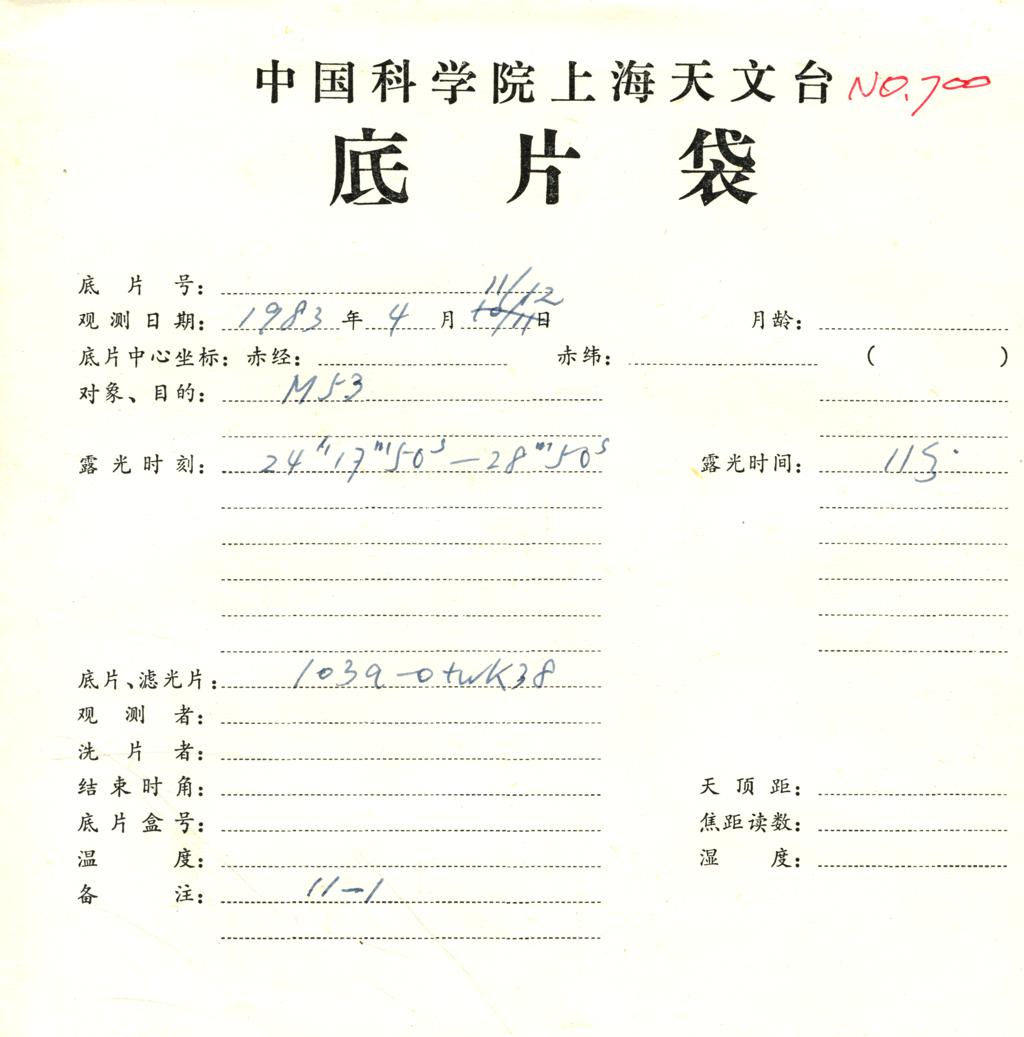 中国科学院上海天文台 NO.700
底片袋
底片号:
观测日期: 1983年4月 10/11 11/12 日 月龄:
底片中心坐标: 赤经: 赤纬: ( )
对象、目的: M53
露光时刻: 24h17m50s—28m50s 露光时间: 11分
底片、滤光片: 103a-0+WK38
观测者:
洗片者:
结束时角: 天顶距:
底片盒号: 焦距读数:
温度: 湿度:
备注: 11-1